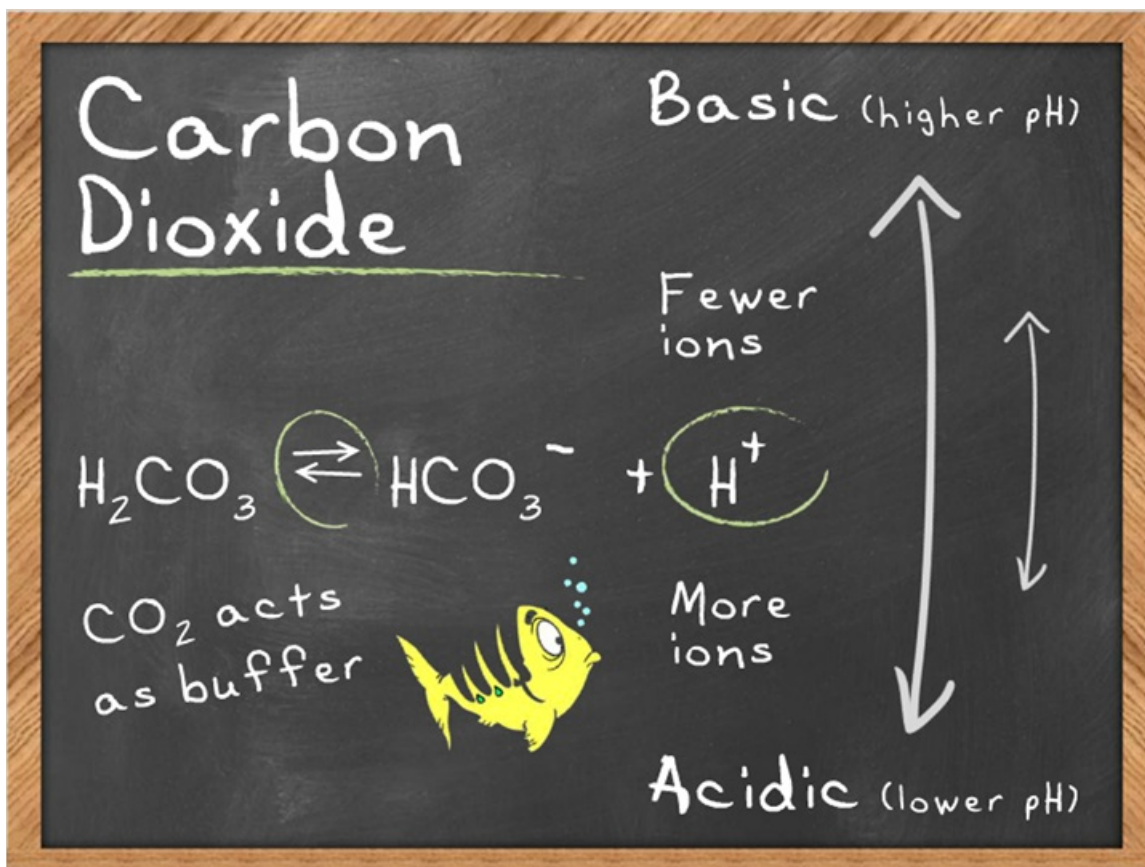 Carbon
Dioxide
Basic (higher pH)
Fewer
ions
H₂CO₃ ⇌ HCO₃⁻ + H⁺
CO₂ acts
as buffer
More
ions
Acidic (lower pH)